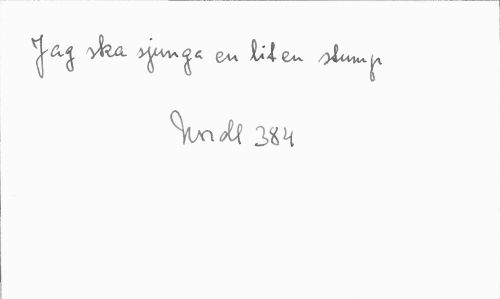 Jag ska sjunga en liten stump
Nordl 384